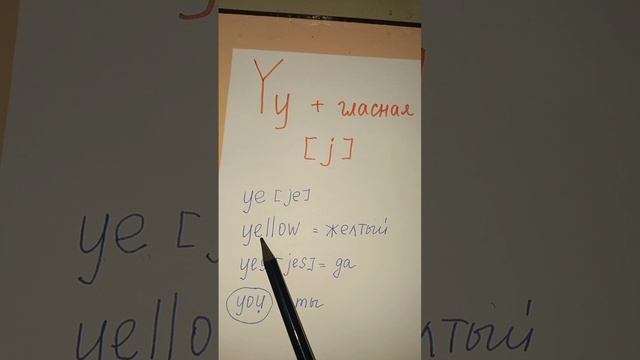 Yy + гласная
[j]
ye [je]
yellow = желтый
yes [jes] = да
you ты